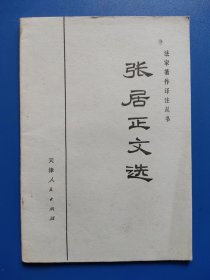 法家著作译注丛书
张居正文选
天津人民出版社